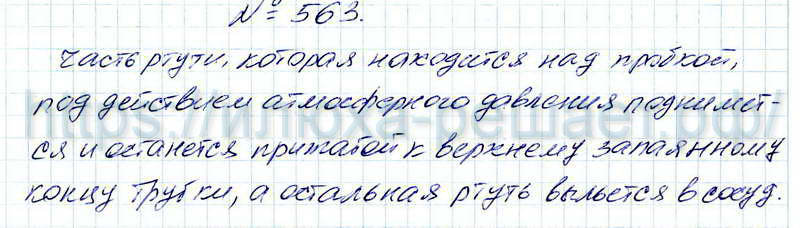 № 563.
Часть ртути, которая находится над пробкой,
под действием атмосферного давления поднимет-
ся и останется прижатой к верхнему запаянному
концу трубки, а остальная ртуть выльется в сосуд.